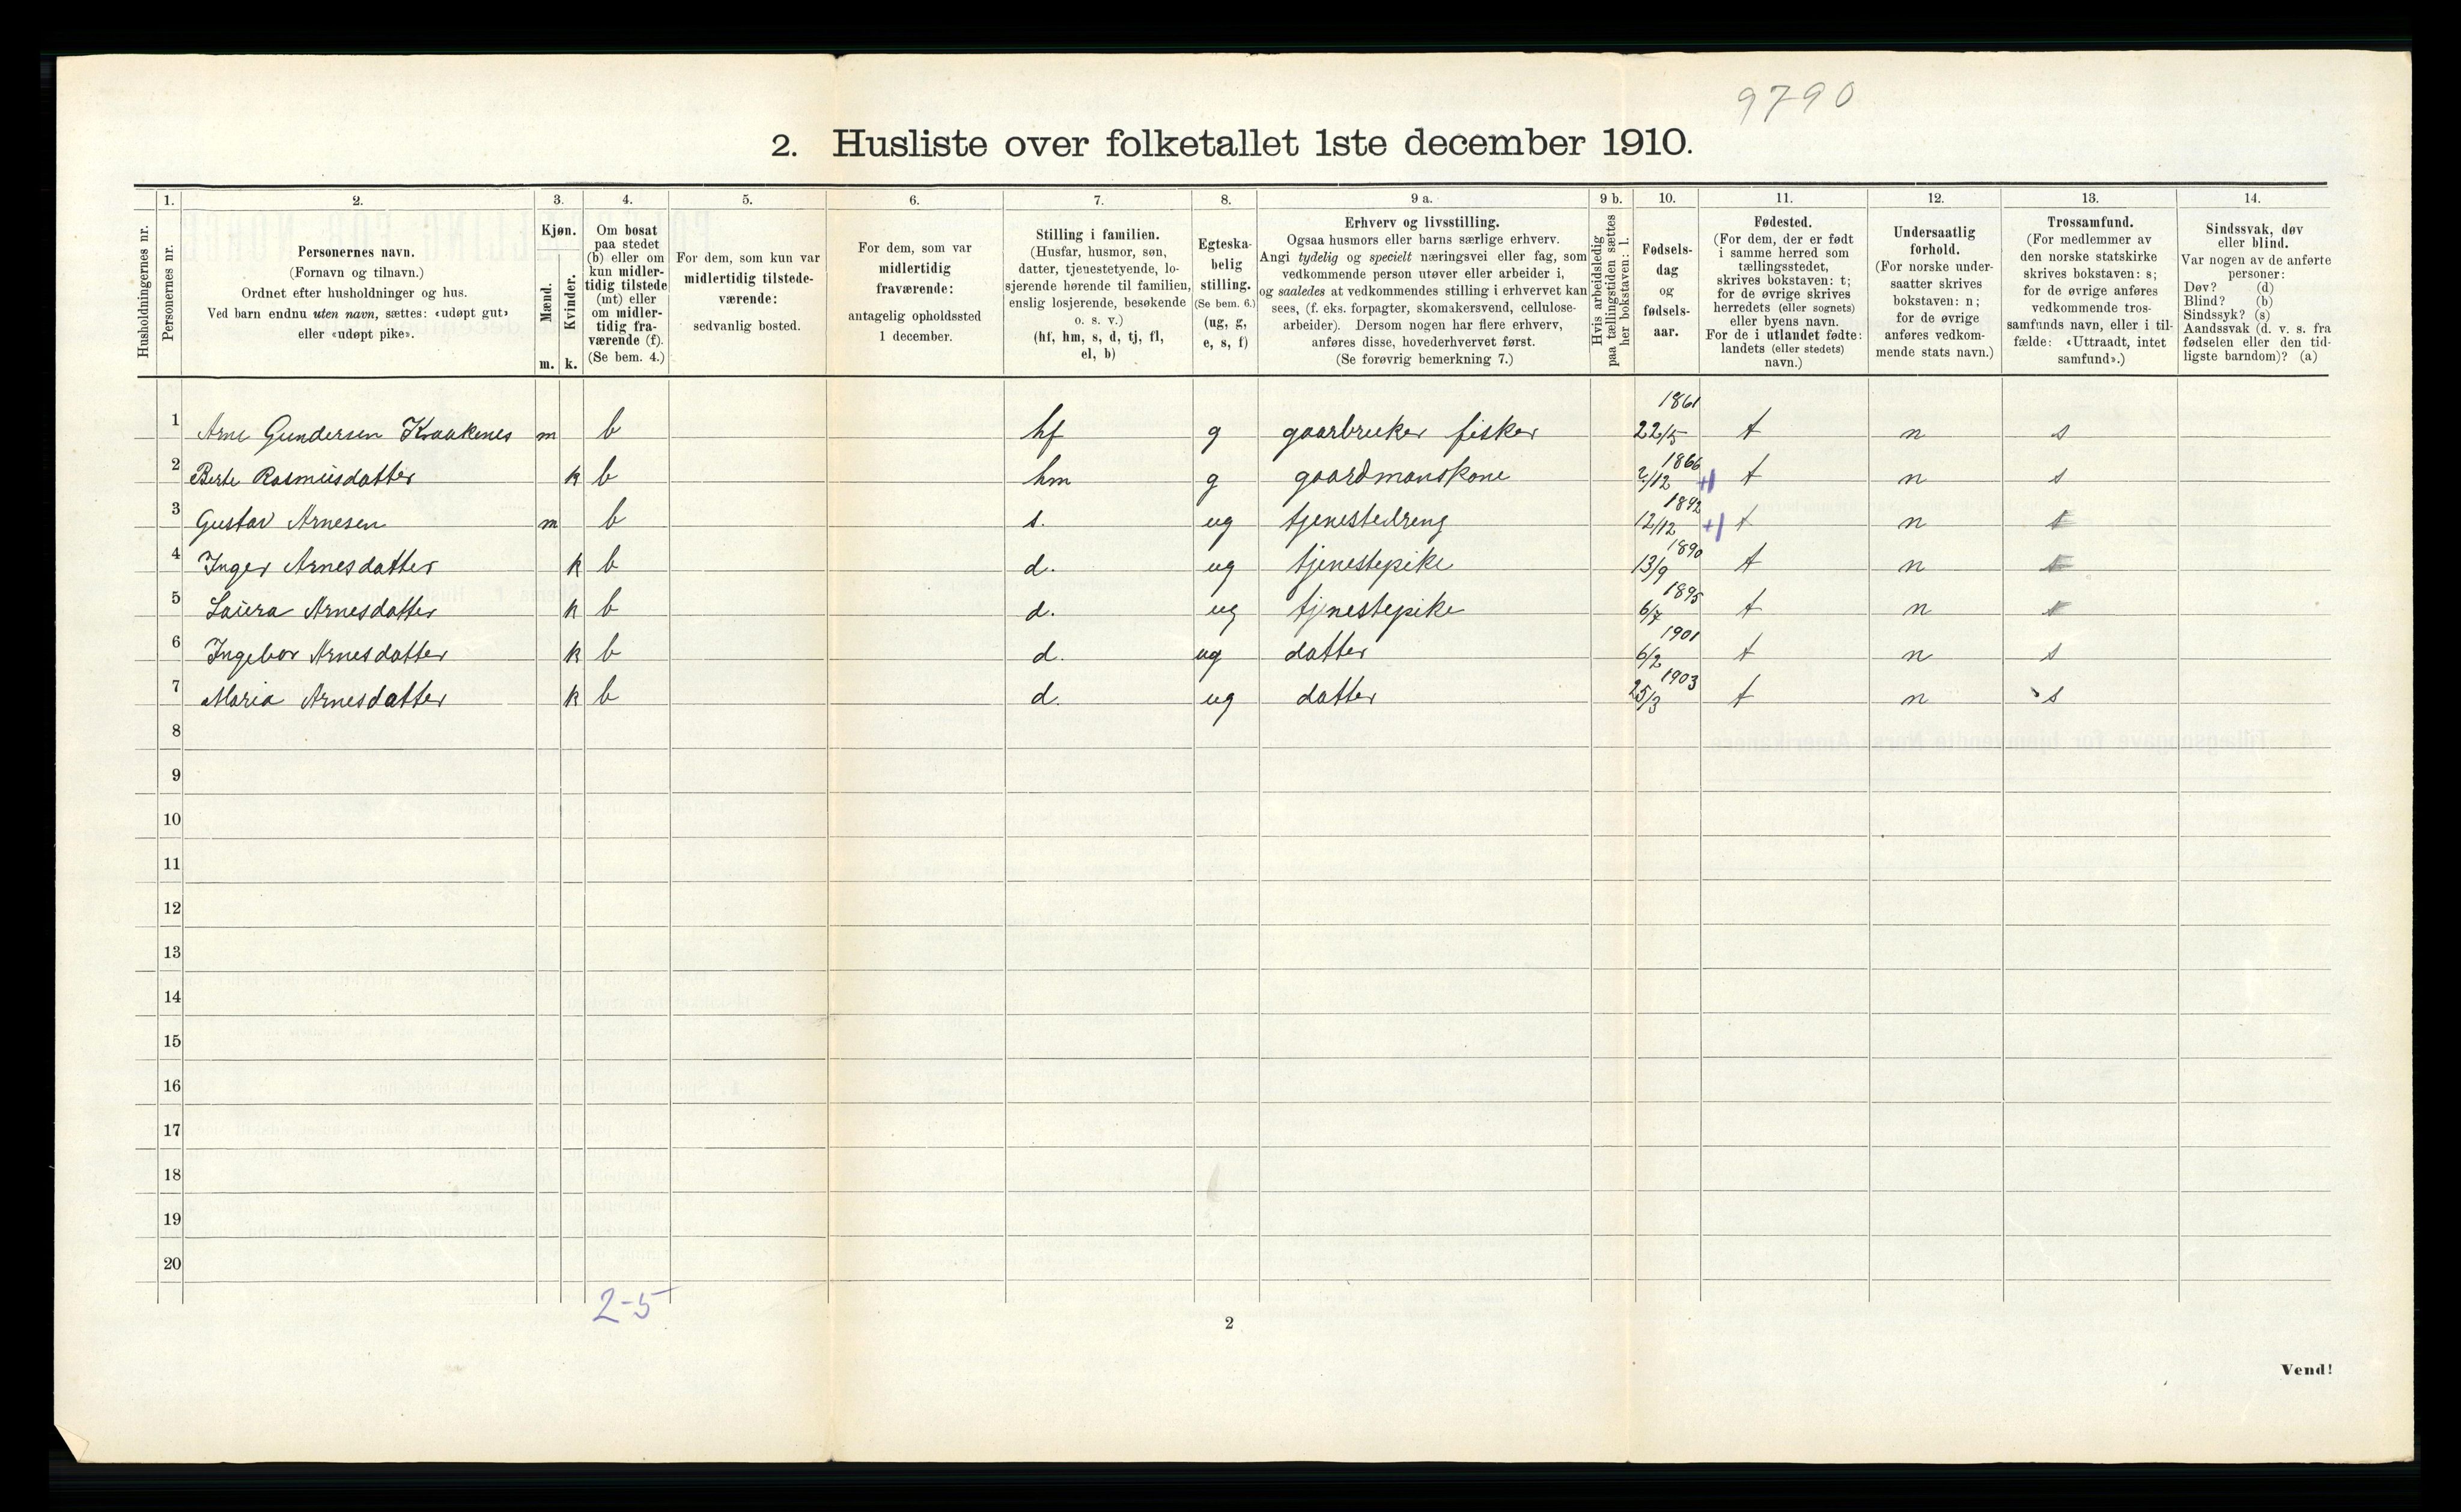 9790
2. Husliste over folketallet 1ste december 1910.
Husholdningernes nr.
1.
Personernes nr.
2.
Personernes navn.
(Fornavn og tilnavn.)
Ordnet efter husholdninger og hus.
Ved barn endnu uten navn, sættes: «udøpt gut»
eller «udøpt pike».
3.
Kjøn.
Mænd.
Kvinder.
m. k.
4.
Om bosat
paa stedet
(b) eller om
kun midler-
tidig tilstede
(mt) eller
om midler-
tidig fra-
værende (f).
(Se bem. 4.)
5.
For dem, som kun var
midlertidig tilstede-
værende:
sedvanlig bosted.
6.
For dem, som var
midlertidig
fraværende:
antagelig opholdssted
1 december.
7.
Stilling i familien.
(Husfar, husmor, søn,
datter, tjenestetyende, lo-
sjerende hørende til familien,
enslig losjerende, besøkende
o. s. v.)
(hf, hm, s, d, tj, fl,
el, b)
8.
Egteska-
belig
stilling.
(Se bem. 6.)
(ug, g,
e, s, f)
9 a.
Erhverv og livsstilling.
Ogsaa husmors eller barns særlige erhverv.
Angi tydelig og specielt næringsvei eller fag, som
vedkommende person utøver eller arbeider i,
og saaledes at vedkommendes stilling i erhvervet kan
sees, (f. eks. forpagter, skomakersvend, cellulose-
arbeider). Dersom nogen har flere erhverv,
anføres disse, hovederhvervet først.
(Se forøvrig bemerkning 7.)
9 b.
Hvis arbeidsledig
paa tællingstiden sættes
her bokstaven: l.
10.
Fødsels-
dag
og
fødsels-
aar.
11.
Fødested.
(For dem, der er født
i samme herred som
tællingsstedet,
skrives bokstaven: t;
for de øvrige skrives
herredets (eller sognets)
eller byens navn.
For de i utlandet fødte:
landets (eller stedets)
navn.)
12.
Undersaatlig
forhold.
(For norske under-
saatter skrives
bokstaven: n;
for de øvrige
anføres vedkom-
mende stats navn.)
13.
Trossamfund.
(For medlemmer av
den norske statskirke
skrives bokstaven: s;
for de øvrige anføres
vedkommende tros-
samfunds navn, eller i til-
fælde: «Uttraadt, intet
samfund».)
14.
Sindssvak, døv
eller blind.
Var nogen av de anførte
personer:
Døv? (d)
Blind? (b)
Sindssyk? (s)
Aandssvak (d. v. s. fra
fødselen eller den tid-
ligste barndom)? (a)
1 Arne Gundersen Kraakenes m b hf g gaarbruker fisker 1861 22/5 t n s
2 Berte Rasmusdatter k b hm g gaardmanskone 1866 2/12 +1 t n s
3 Gustav Arnesen m b s. ug tjenestedreng 1892 12/12 +1 t n s
4 Inger Arnesdatter k b d. ug tjenestepike 1890 13/9 t n s
5 Laura Arnesdatter k b d. ug tjnestepike 1895 6/7 t n s
6 Ingebor Arnesdatter k b d. ug datter 1901 6/2 t n s
7 Maria Arnesdatter k b d. ug datter 1903 25/3 t n s
8
9
10
11
12
13
14
15
16
17
18
19
20
2-5
2
Vend!